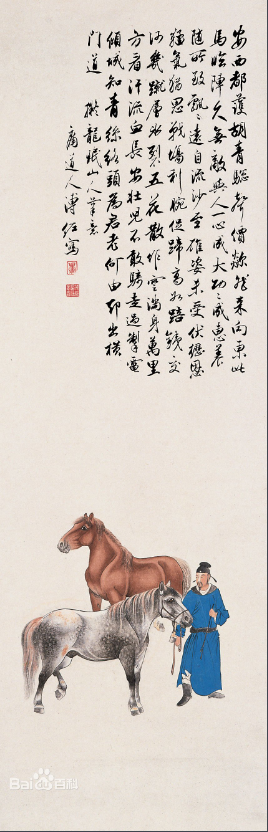 安西都護胡青驄聲價歘然来向東此
馬臨陣久無敵與人一心成大功〻成惠養
隨所致飄〻遠自流沙至雄姿未受伏櫪恩
猛氣猶思戰場利腕促蹄高如踣鐵交
河幾蹴層冰裂五花散作雲滿身萬里
方看汗流血長安壯兒不敢騎走過掣電
傾城知青絲絡頭為君老何由却出橫
門道 擬龍眠山人筆意
庸道人溥佐寫
Bai百科